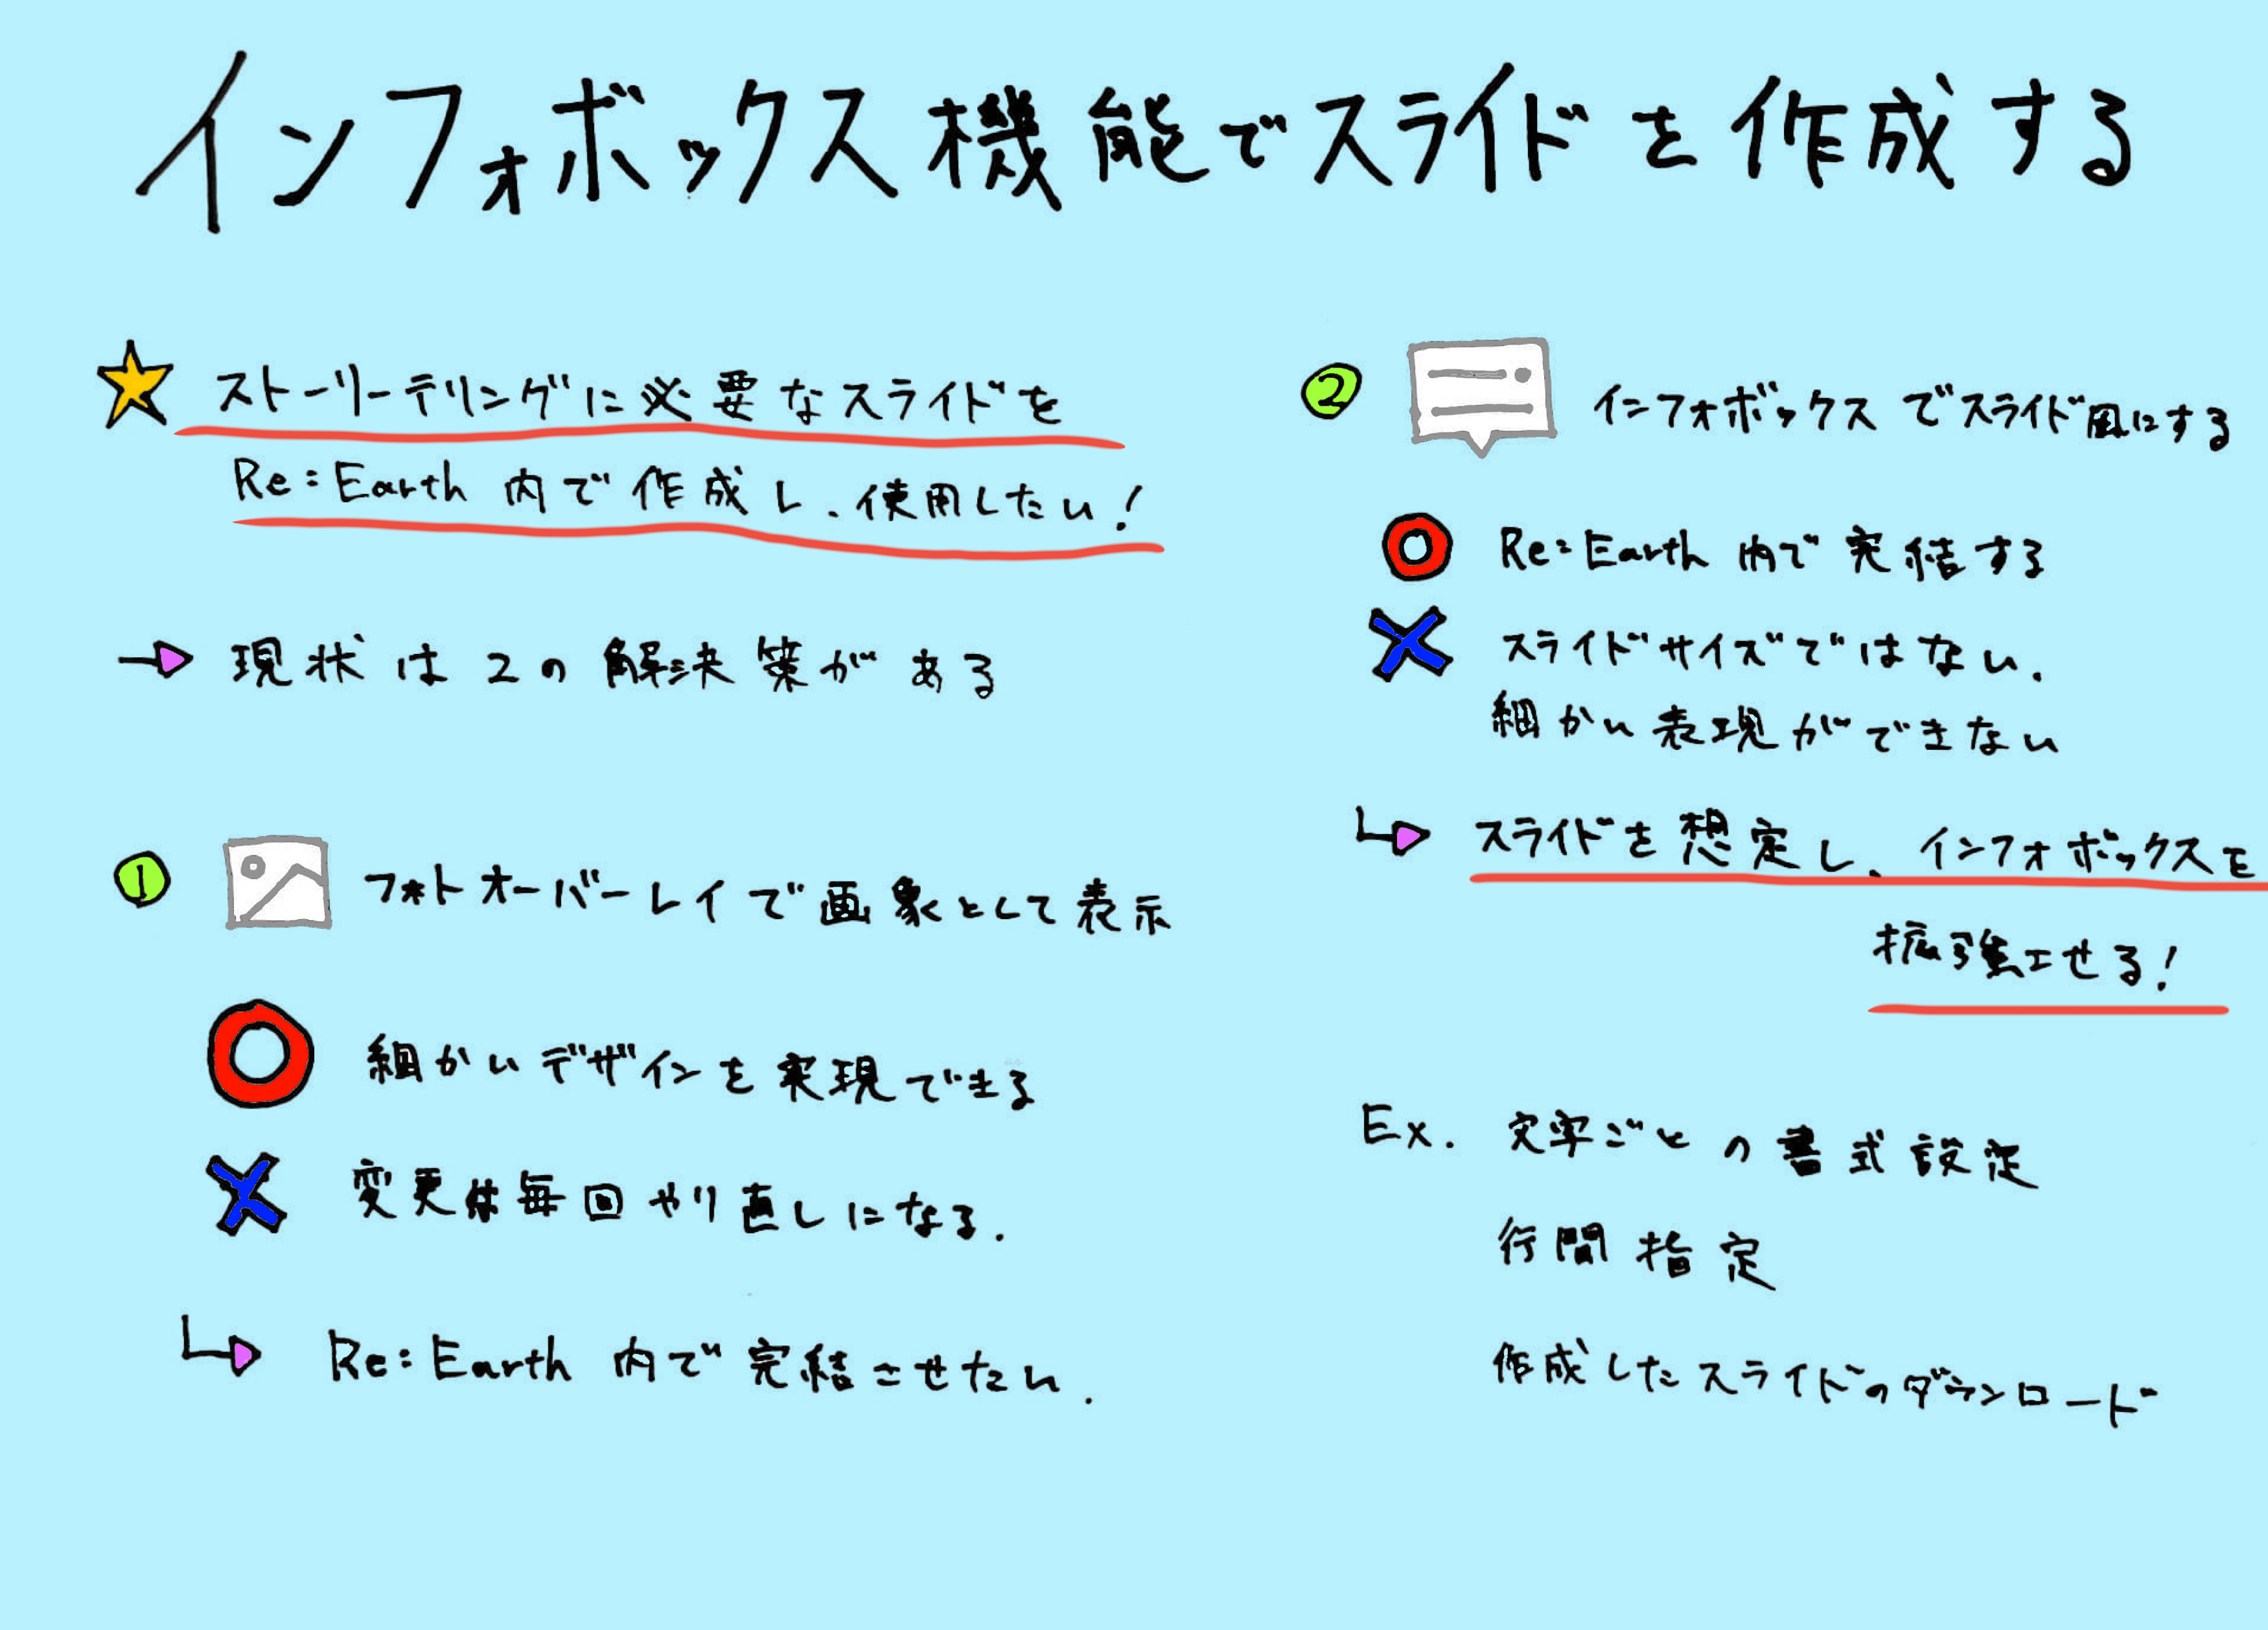 インフォボックス機能でスライドを作成する
ストーリーテリングに必要なスライドを
Re:Earth 内で作成し、使用したい!
現状は2の解決策がある
1 フォトオーバーレイで画象として表示
細かいデザインを実現できる
変更は毎回やり直しになる.
Re:Earth 内で完結させたい.
2 インフォボックスでスライド風にする
Re:Earth 内で完結する
スライドサイズではない.
細かい表現ができない
スライドを想定し、インフォボックスを
拡張させる!
Ex. 文字ごとの書式設定
行間指定
作成したスライドのダウンロード